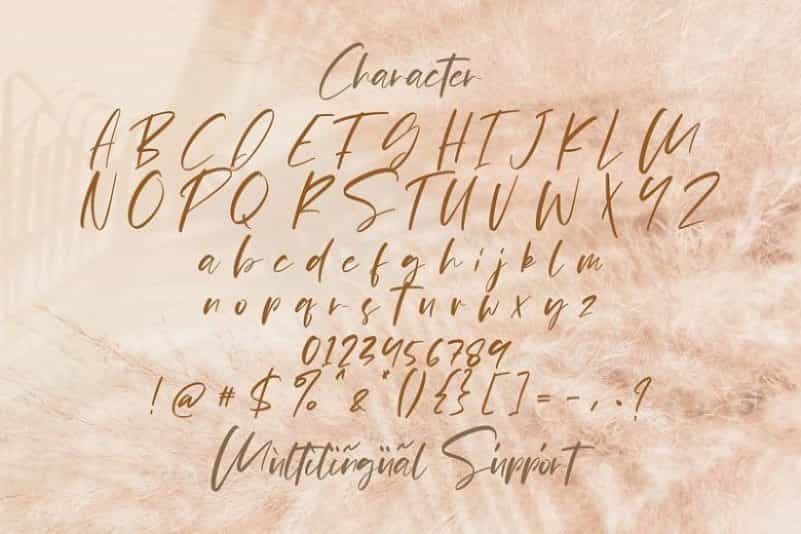 Character
A B C D E F G H I J K L M
N O P Q R S T U V W X Y Z
a b c d e f g h i j k l m
n o p q r s t u v w x y z
0123456789
! @ # $ % ^ & * () {} [ ] = - , . ?
Mùltïlïñgüãl Súppórt